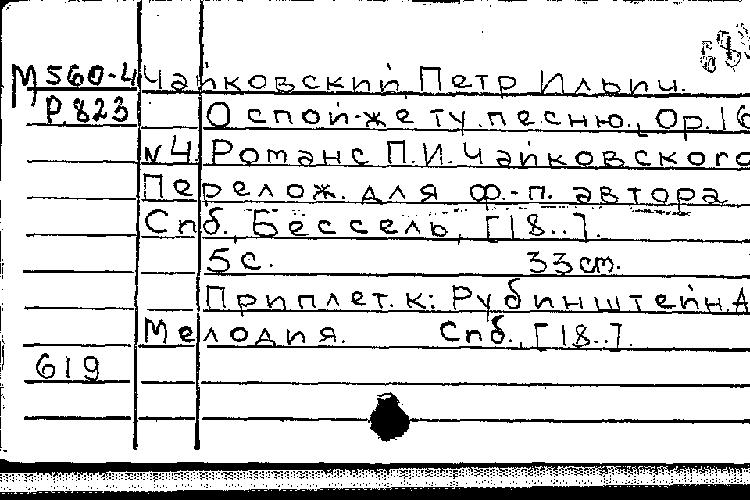 М560-4 Чайковский, Петр Ильич.
Р 823 О спой-же ту песню., Ор.16
№4. Романс П.И.Чайковского
Перелож. для ф.-п. автора
Спб., Бессель, [18..].
5с. 33см.
Приплет. к: Рубинштейн.А
Мелодия. Спб., [18..].
619